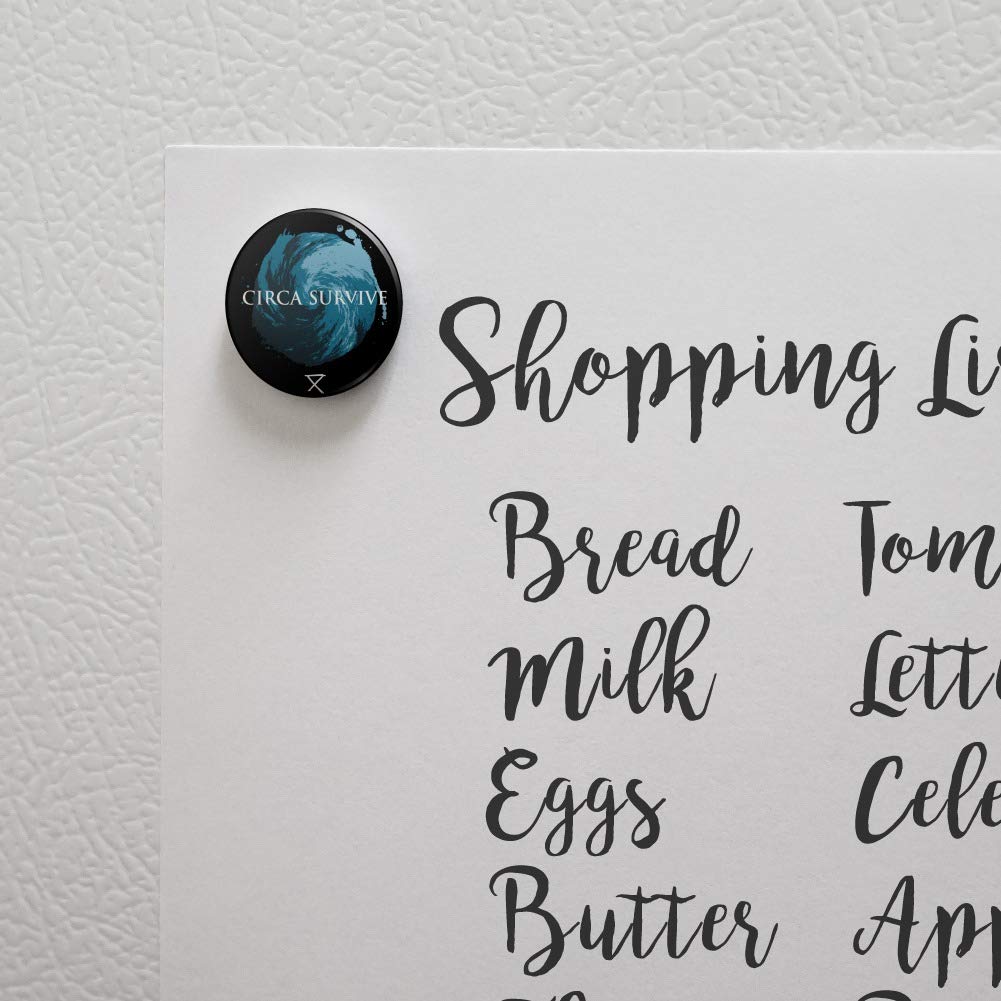 CIRCA SURVIVE
Shopping Li
Bread Tom
Milk Lett
Eggs Cele
Butter App